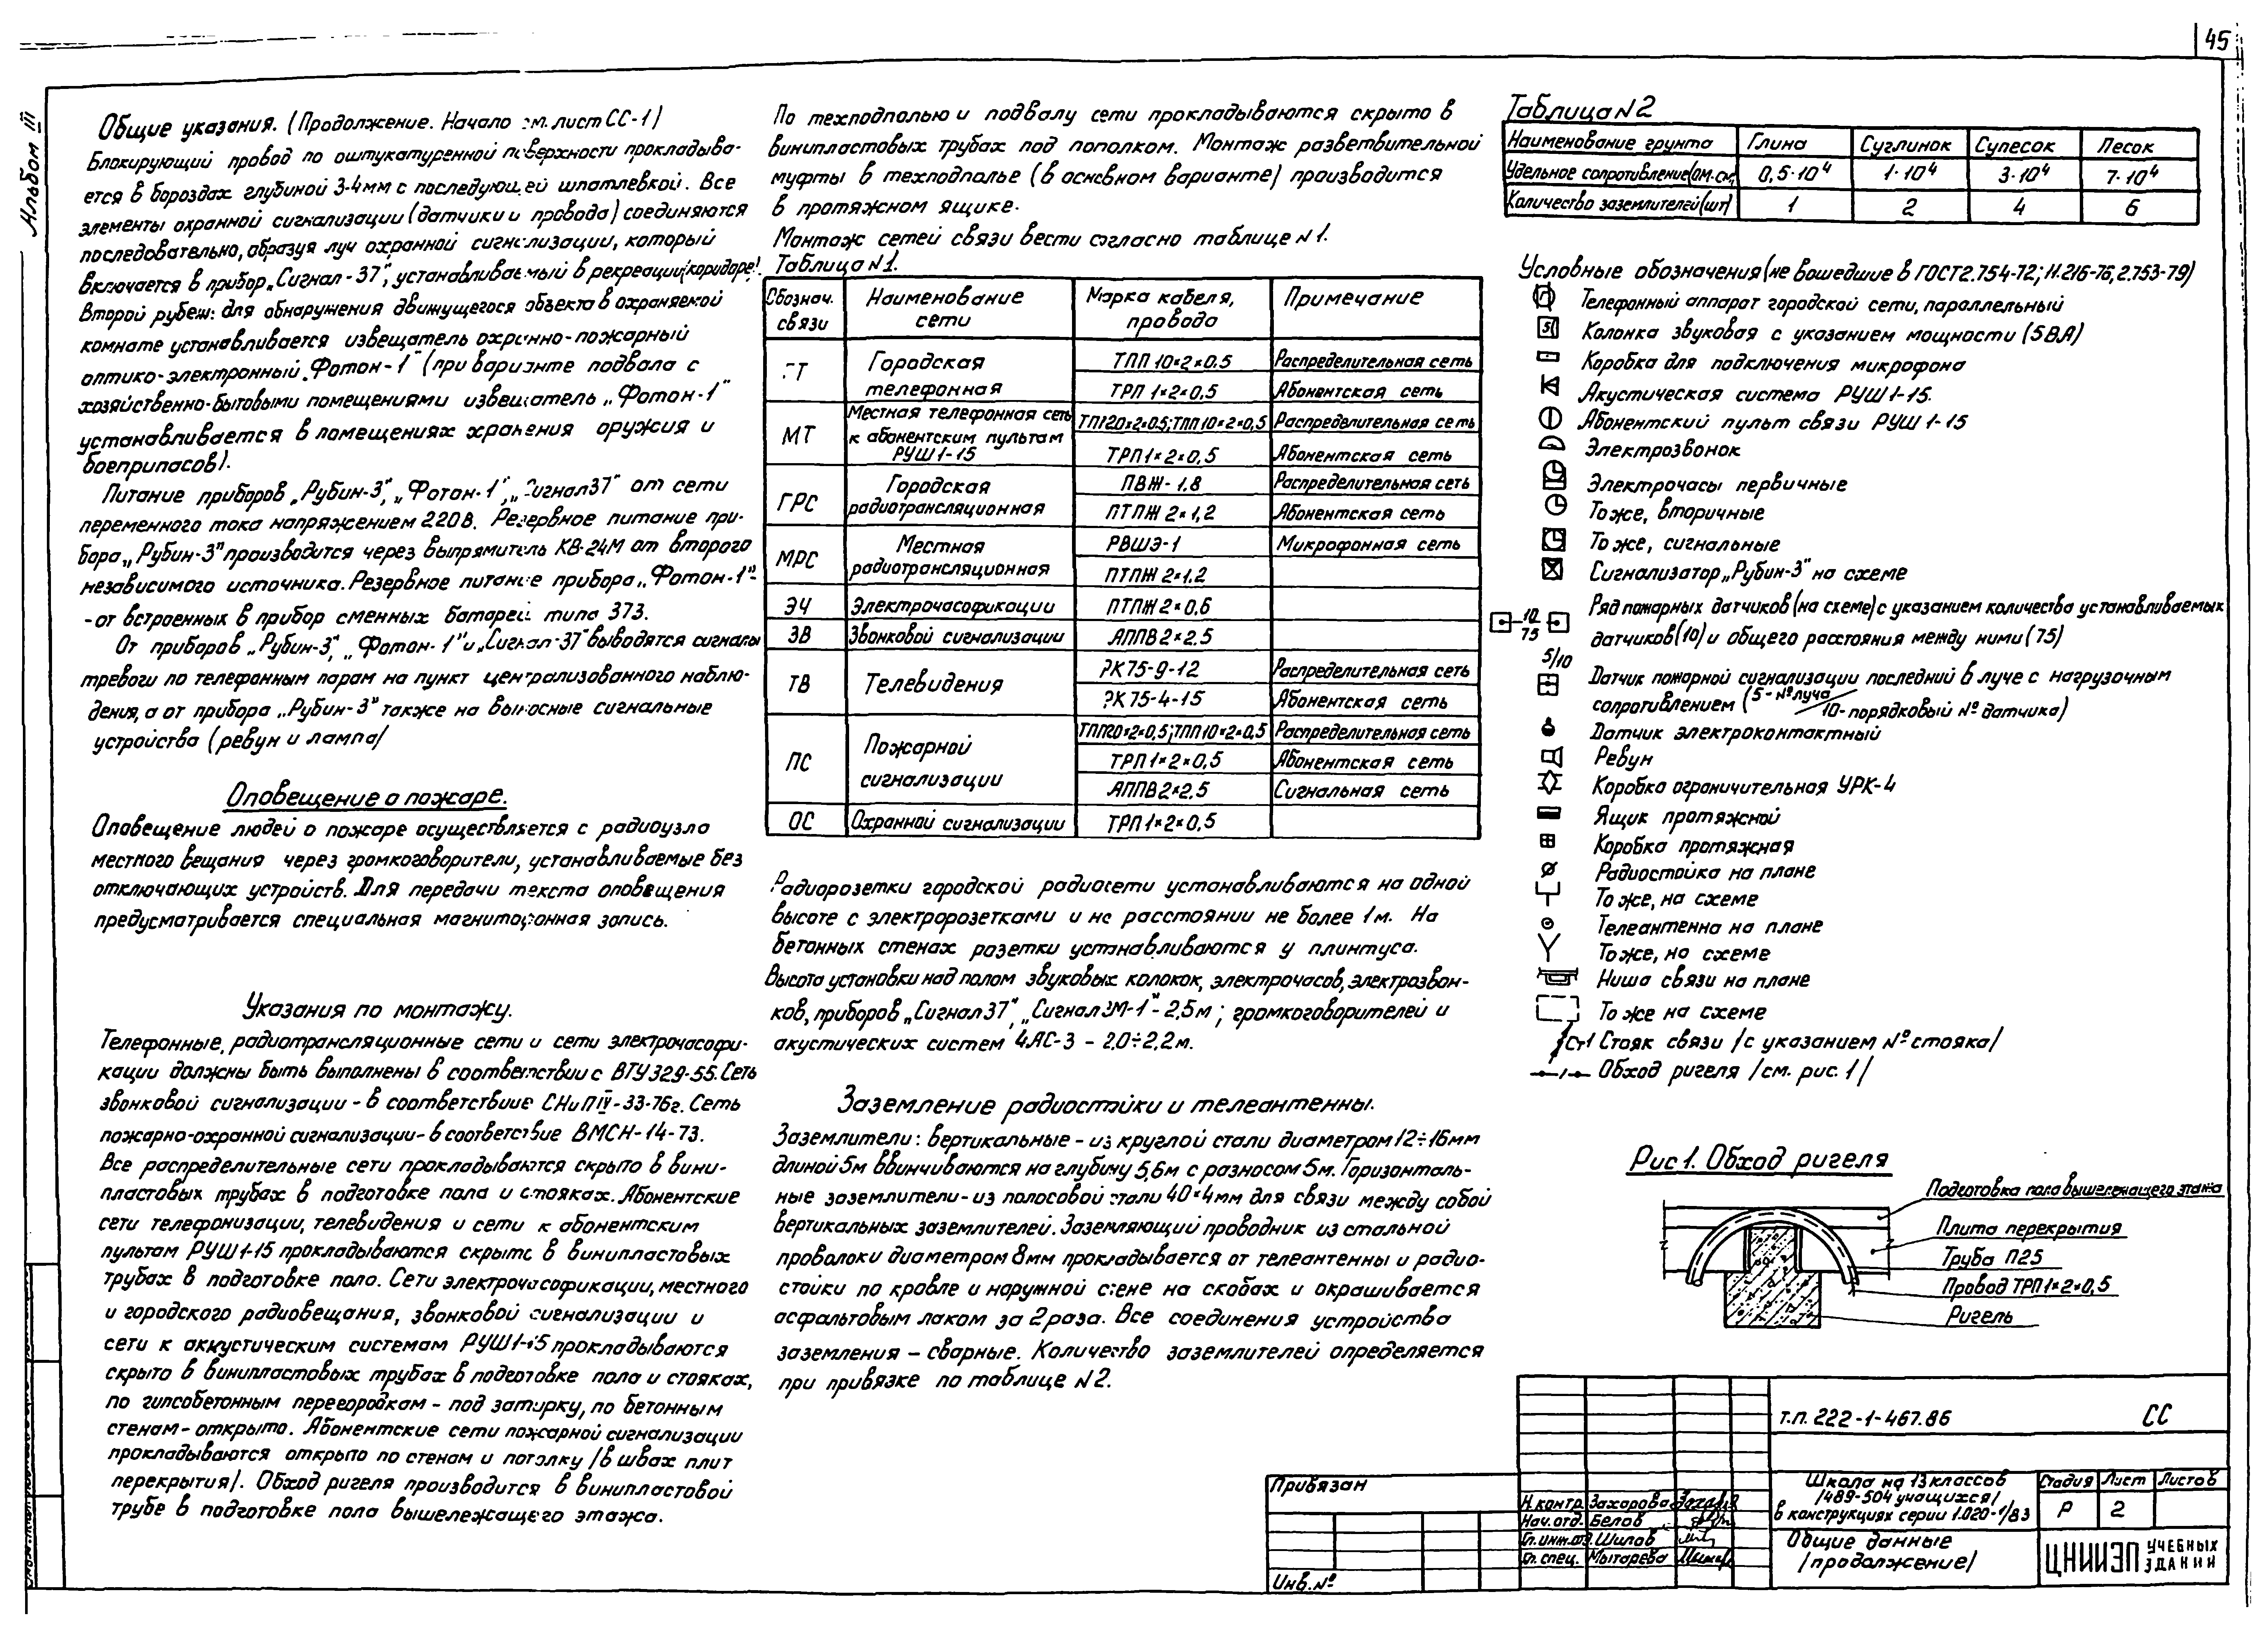 45
Альбом III
Общие указания. (Продолжение. Начало см. лист СС-1)
Блокирующий провод по оштукатуренной поверхности прокладыва-
ется в бороздах глубиной 3-4мм с последующей шпатлевкой. Все
элементы охранной сигнализации (датчики и провода) соединяются
последовательно, образуя луч охранной сигнализации, который
включается в прибор „Сигнал-37“, устанавливаемый в рекреации (коридоре).
Второй рубеж: для обнаружения движущегося объекта в охраняемой
комнате устанавливается извещатель охранно-пожарный
оптико-электронный „Фотон-1“ (при варианте подвала с
хозяйственно-бытовыми помещениями извещатель „Фотон-1“
устанавливается в помещениях хранения оружия и
боеприпасов).
Питание приборов „Рубин-3“, „Фотон-1“, „Сигнал37“ от сети
переменного тока напряжением 220В. Резервное питание при-
бора „Рубин-3“ производится через выпрямитель КВ-24М от второго
независимого источника. Резервное питание прибора „Фотон-1“-
- от встроенных в прибор сменных батарей типа 373.
От приборов „Рубин-3“, „Фотон-1“ и „Сигнал-37“ выводятся сигналы
тревоги по телефонным парам на пункт централизованного наблю-
дения, а от прибора „Рубин-3“ также на выносные сигнальные
устройства (ревун и лампа/
Оповещение о пожаре.
Оповещение людей о пожаре осуществляется с радиоузла
местного вещания через громкоговорители, устанавливаемые без
отключающих устройств. Для передачи текста оповещения
предусматривается специальная магнитофонная запись.
Указания по монтажу.
Телефонные, радиотрансляционные сети и сети электрочасофи-
кации должны быть выполнены в соответствии с ВТУ 329-55. Сеть
звонковой сигнализации - в соответствие СНиП IV-33-76г. Сеть
пожарно-охранной сигнализации - в соответствие ВМСН-14-73.
Все распределительные сети прокладываются скрыто в вини-
пластовых трубах в подготовке пола и стояках. Абонентские
сети телефонизации, телевидения и сети к абонентским
пультам РУШ1-15 прокладываются скрыто в винипластовых
трубах в подготовке пола. Сети электрочасофикации, местного
и городского радиовещания, звонковой сигнализации и
сети к аккустическим системам РУШ1-15 прокладываются
скрыто в винипластовых трубах в подготовке пола и стояках,
по гипсобетонным перегородкам - под затирку, по бетонным
стенам - открыто. Абонентские сети пожарной сигнализации
прокладываются открыто по стенам и потолку /в швах плит
перекрытия/. Обход ригеля производится в винипластовой
трубе в подготовке пола вышележащего этажа.
По техподполью и подвалу сети прокладываются скрыто в
винипластовых трубах под потолком. Монтаж разветвительной
муфты в техподполье (в основном варианте) производится
в протяжном ящике.
Монтаж сетей связи вести согласно таблице №1.
Таблица №1.
Обознач. связи | Наименование сети | Марка кабеля, провода | Примечание
ГТ | Городская телефонная | ТПП 10×2×0.5 | Распределительная сеть
ТРП 1×2×0.5 | Абонентская сеть
МТ | Местная телефонная сеть к абонентским пультам РУШ1-15 | ТПП20×2×0.5; ТПП10×2×0,5 | Распределительная сеть
ТРП1×2×0,5 | Абонентская сеть
ГРС | Городская радиотрансляционная | ПВЖ-1.8 | Распределительная сеть
ПТПЖ 2×1,2 | Абонентская сеть
МРС | Местная радиотрансляционная | РВШЭ-1 | Микрофонная сеть
ПТПЖ 2×1.2
ЭЧ | Электрочасофикации | ПТПЖ 2×0.6
ЗВ | Звонковой сигнализации | АППВ 2×2.5
ТВ | Телевидения | РК75-9-12 | Распределительная сеть
РК75-4-15 | Абонентская сеть
ПС | Пожарной сигнализации | ТПП20×2×0,5; ТПП10×2×0,5 | Распределительная сеть
ТРП1×2×0,5 | Абонентская сеть
АППВ2×2.5 | Сигнальная сеть
ОС | Охранной сигнализации | ТРП1×2×0,5
Радиорозетки городской радиосети устанавливаются на одной
высоте с электророзетками и на расстоянии не более 1м. На
бетонных стенах розетки устанавливаются у плинтуса.
Высота установки над полом звуковых колонок, электрочасов, электрозвон-
ков, приборов „Сигнал37“, „Сигнал ЗМ-1“ - 2,5м; громкоговорителей и
акустических систем 4АС-3 - 2.0÷2.2м.
Заземление радиостойки и телеантенны.
Заземлители: вертикальные - из круглой стали диаметром 12÷16мм
длиной 5м ввинчиваются на глубину 5,6м с разносом 5м. Горизонталь-
ные заземлители - из полосовой стали 40×4мм для связи между собой
вертикальных заземлителей. Заземляющий проводник из стальной
проволоки диаметром 8мм прокладывается от телеантенны и радио-
стойки по кровле и наружной стене на скобах и окрашивается
асфальтовым лаком за 2раза. Все соединения устройства
заземления - сварные. Количество заземлителей определяется
при привязке по таблице №2.
Таблица №2
Наименование грунта | Глина | Суглинок | Супесок | Песок
Удельное сопротивление (ом.см) | 0,5·10⁴ | 1·10⁴ | 3·10⁴ | 7·10⁴
Количество заземлителей (шт) | 1 | 2 | 4 | 6
Условные обозначения (не вошедшие в ГОСТ2.754-72; 11.216-76, 2.753-79)
Телефонный аппарат городской сети, параллельный
5 Колонка звуковая с указанием мощности (5ВА)
Коробка для подключения микрофона
Акустическая система РУШ1-15.
Абонентский пульт связи РУШ1-15
Электрозвонок
Электрочасы первичные
То же, вторичные
То же, сигнальные
Сигнализатор „Рубин-3“ на схеме
10 75 Ряд пожарных датчиков (на схеме) с указанием количества устанавливаемых
датчиков (10) и общего расстояния между ними (75)
5/10 Датчик пожарной сигнализации последний в луче с нагрузочным
сопротивлением (5-№ луча / 10-порядковый № датчика)
Датчик электроконтактный
Ревун
Коробка ограничительная УРК-4
Ящик протяжной
Коробка протяжная
Радиостойка на плане
То же, на схеме
Телеантенна на плане
То же, на схеме
Ниша связи на плане
То же на схеме
Ст1 Стояк связи /с указанием № стояка/
Обход ригеля /см. рис. 1/
Рис 1. Обход ригеля
Подготовка пола вышележащего этажа
Плита перекрытия
Труба П25
Провод ТРП1×2×0,5
Ригель
Привязан
Инв. №
Н.контр. Захарова
Нач. отд. Белов
Гл. инж. отд. Шилов
Гл. спец. Мытарева
т.п. 222-1-467.86 СС
Школа на 13 классов
/489-504 учащихся/
в конструкциях серии 1.020-1/83
Стадия Лист Листов
Р 2
Общие данные
/продолжение/
ЦНИИЭП УЧЕБНЫХ ЗДАНИЙ